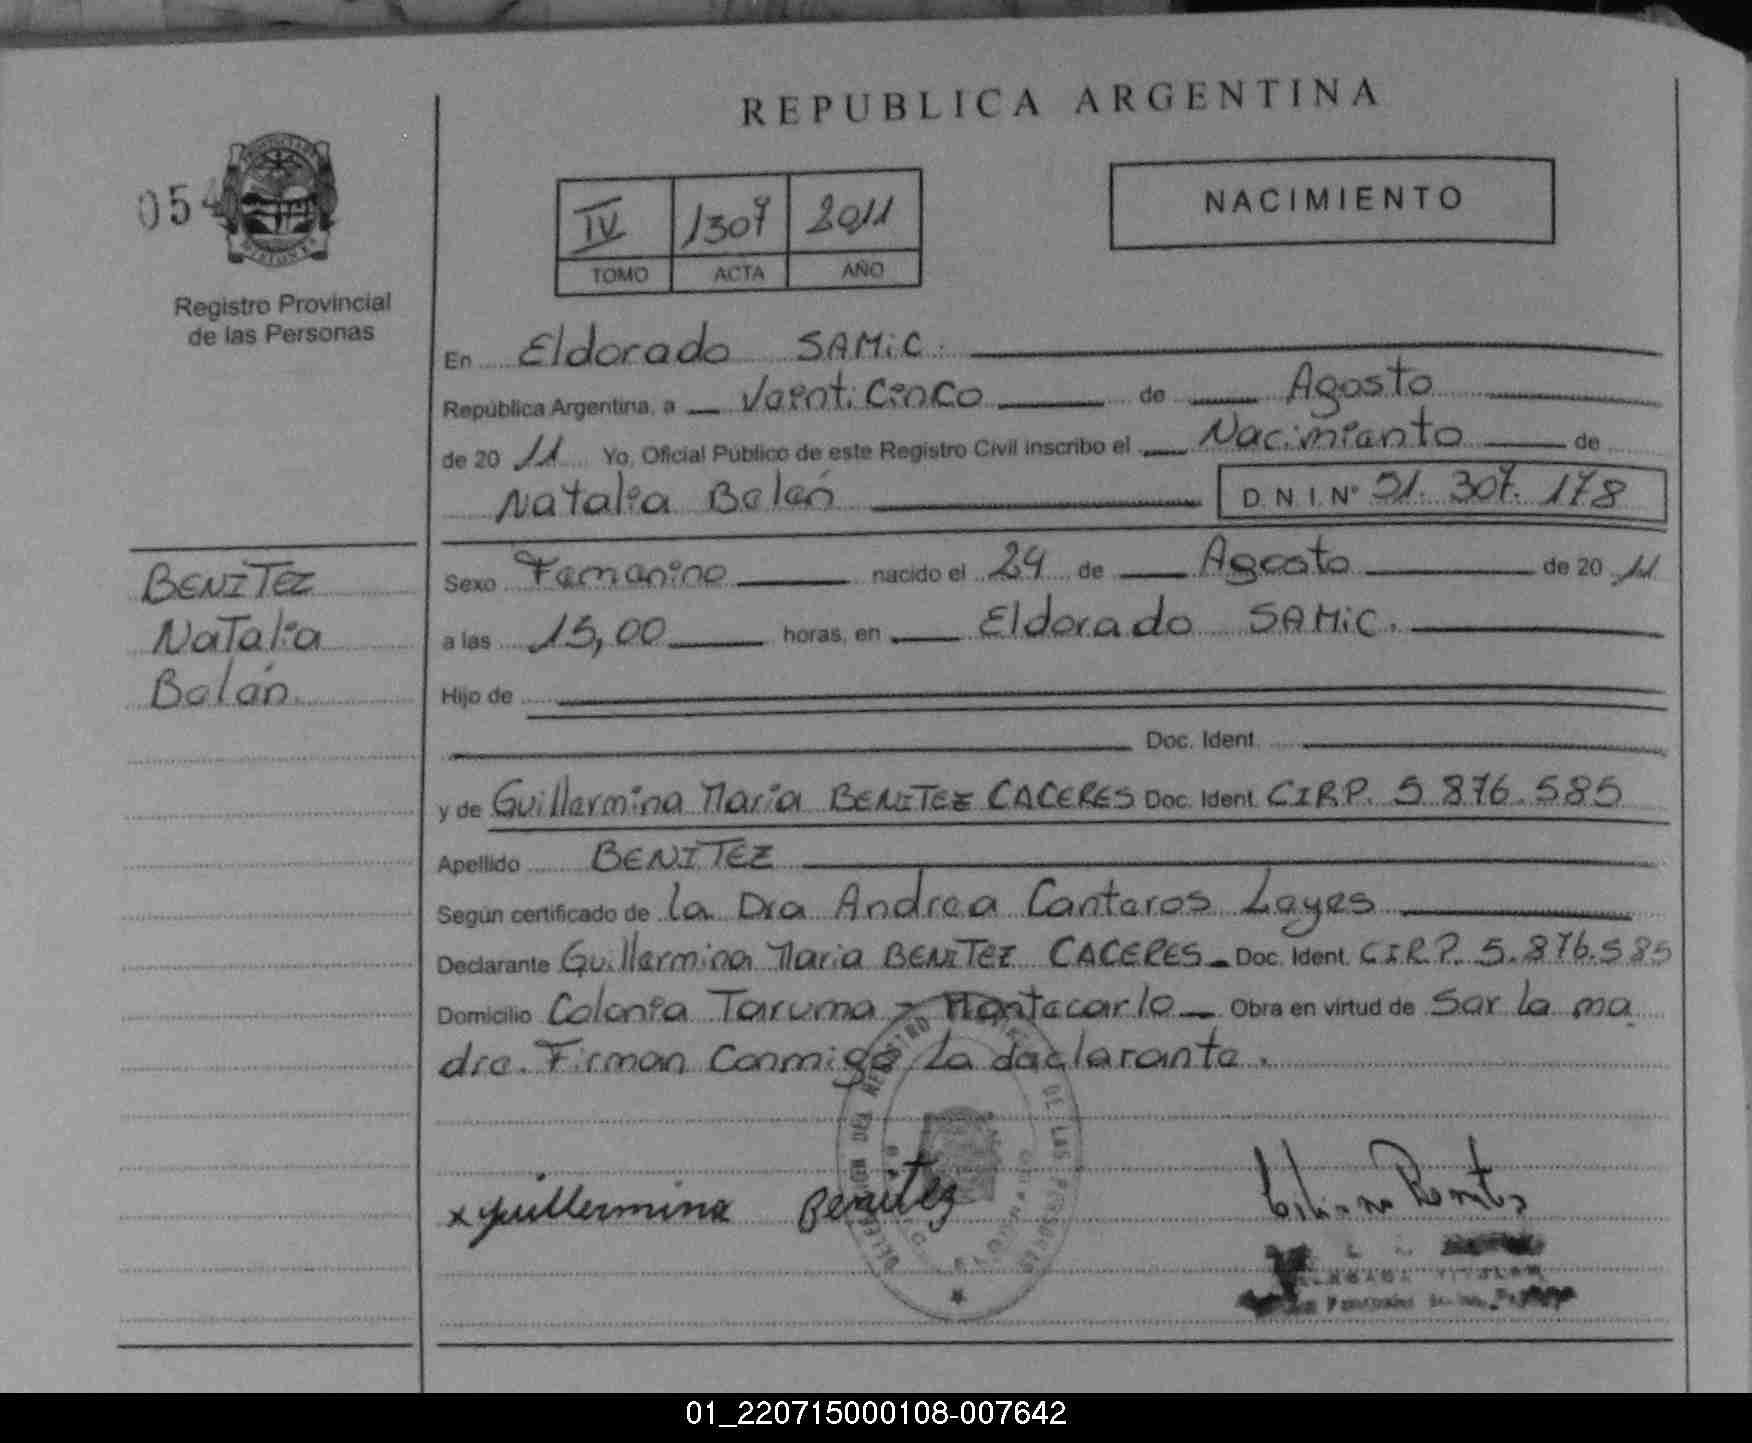 REPUBLICA ARGENTINA
NACIMIENTO
054
IV 1307 2011
TOMO ACTA AÑO
Registro Provincial
de las Personas
En Eldorado SAMiC.
República Argentina, a Veinticinco de Agosto
de 20 11 Yo, Oficial Público de este Registro Civil inscribo el Nacimiento de
Natalia Belén D.N.I. N° 51.307.178
BENITEZ
Natalia
Belén.
Sexo Femenino nacido el 24 de Agosto de 20 11
a las 15,00 horas, en Eldorado SAMiC.
Hijo de
Doc. Ident.
y de Guillermina Maria BENITEZ CACERES Doc. Ident. CIRP. 5.876.585
Apellido BENITEZ
Según certificado de la Dra Andrea Canteros Leyes
Declarante Guillermina Maria BENITEZ CACERES Doc. Ident. C.I.R.P. 5.876.585
Domicilio Colonia Taruma - Montecarlo Obra en virtud de Ser la ma
dre. Firman Conmigo La declarante.
x guillermina Benitez
DE LAS PERSONAS
TITULAR
01_220715000108-007642